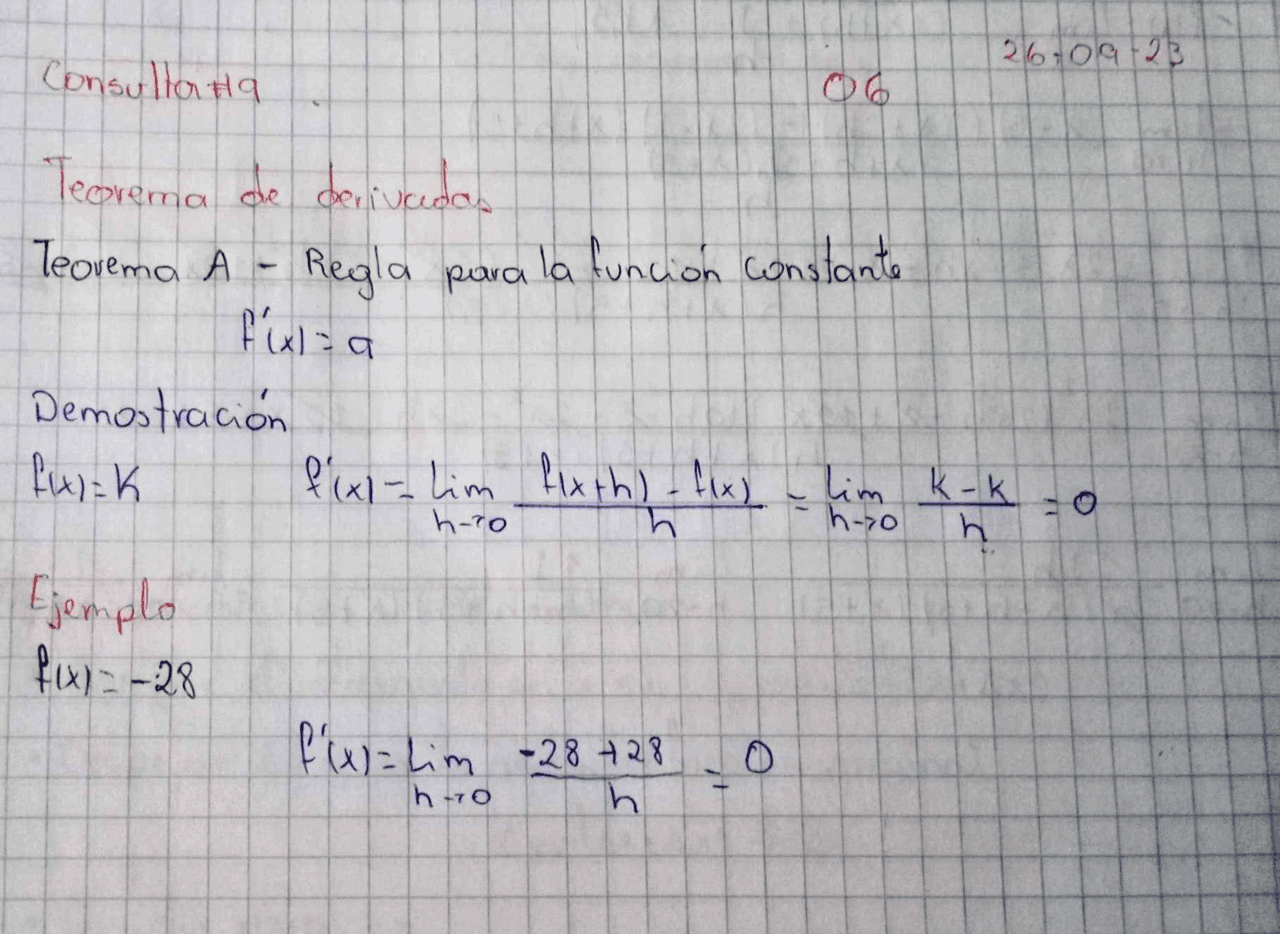 Consulta #9 06 26-09-23
Teorema de derivadas
Teorema A - Regla para la función constante
f'(x) = a
Demostración
f(x) = K f'(x) = Lim h→0 f(x+h) - f(x) / h = Lim h→0 K - K / h = 0
Ejemplo
f(x) = -28
f'(x) = Lim h→0 -28 + 28 / h = 0